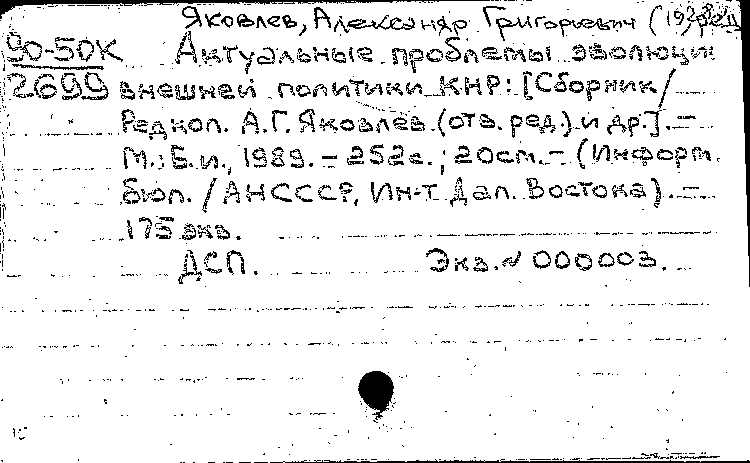 Яковлев, Александр Григорьевич (19
90-50К Актуальные проблемы эволюции
2699 внешней политики КНР: [Сборник/
Редкол. А.Г. Яковлев (отв. ред.) и др.]. -
М.: Б.и., 1989. - 252с.; 20см. - (Информ.
бюл. / АНСССР, Ин-т Дал. Востока). -
175 экз.
ДСП. Экз. № 000003.